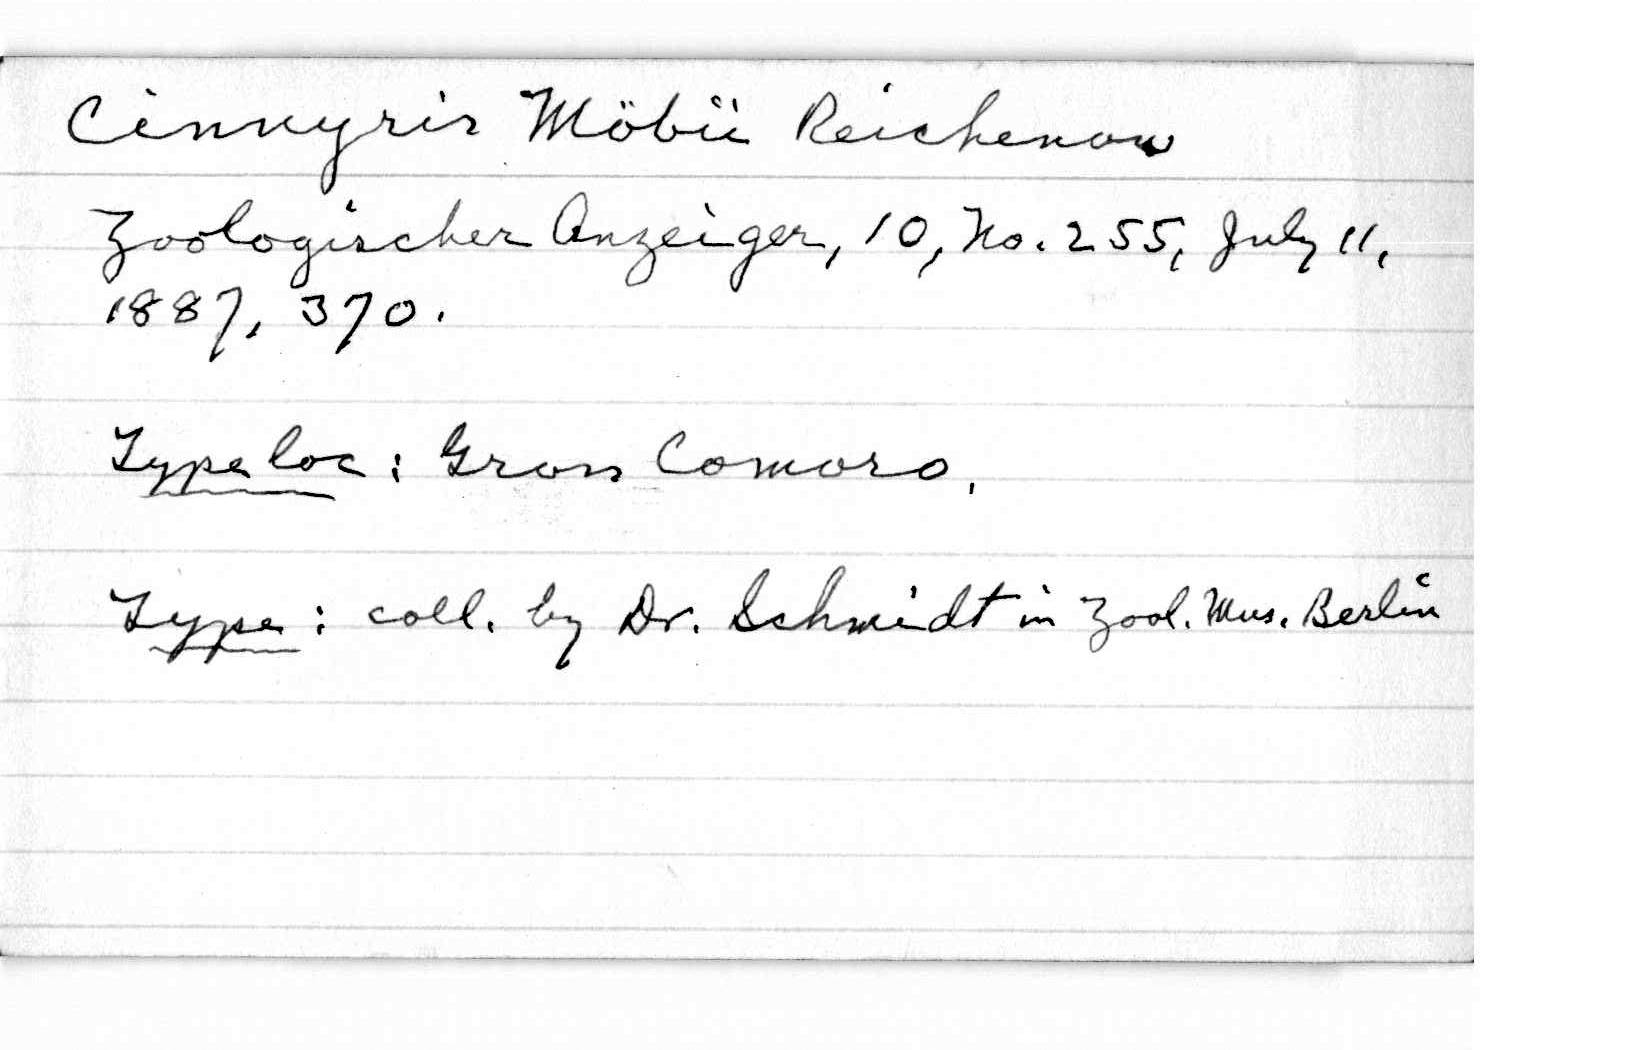 Cinnyris Möbii Reichenow
Zoologischer Anzeiger, 10, No. 255, July 11,
1887, 370.
Type loc: Gross Comoro.
Type: coll. by Dr. Schmidt in Zool. Mus. Berlin